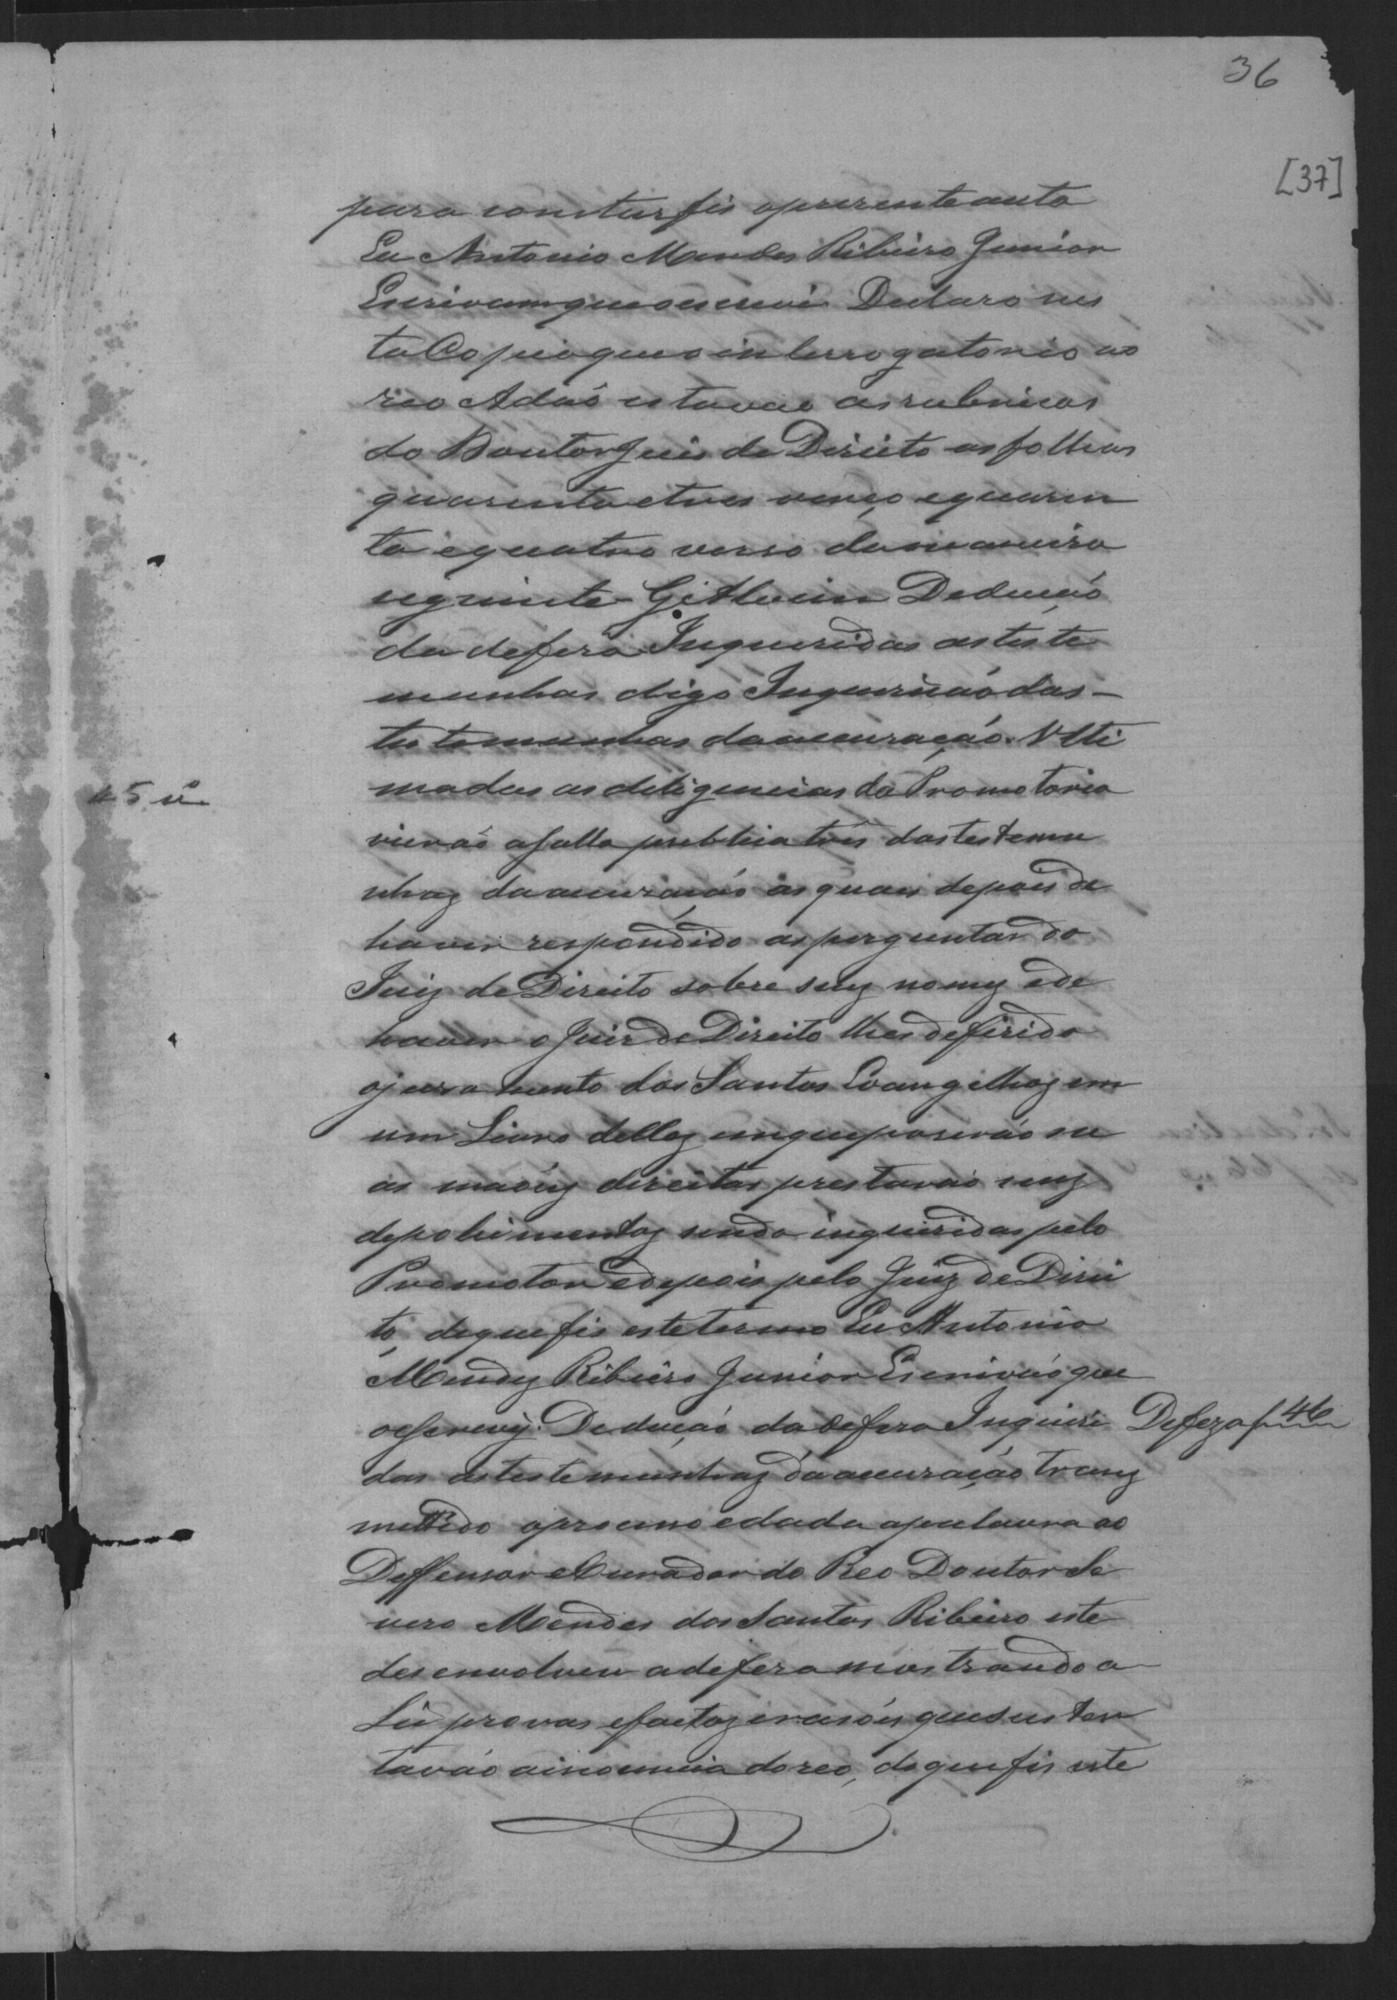 36
[37]
para constar fis apresente auto
Eu Antonio Mendes Ribeiro Junior
Escrivam que o escrevi Declaro nes
ta Copia que o interrogatorio ao
reo Adaõ estavão as rubricas
do Doutor Juis de Direito as folhas
quarenta e tres verço e quaren
ta e quatro verso da maneira
seguinte Deducaõ
da defesa Inqueridas as teste
munhas digo Inquiricaõ das
testemunhas da accuzação. Ulti
madas as deligencias da Promotoria
vieraõ a salla publica tres das testemu
nhaz da accuzaçaõ as quais depois de
haver respondido as perguntas do
Juiz de Direito sobre seuz nomez e de
haver o Juiz de Direito lhes deferido
o juramento dos Santos Evangelhoz em
um Livro dellez em que poseraõ su
as maõez direitas prestaraõ seuz
depohimentoz sendo inqueridas pelo
Promotor e depois pelo Juiz de Direi
to, de que fis este termo Eu Antonio
Mendez Ribeiro Junior Escrivaõ que
o escrevy. Deducçaõ da defesa Inquiri
Defeza f 46
das as testemunhaz da accuzação tranz
mettido o processo e dada a palavra ao
Deffensor e Curador do Reo Doutor Se
vero Mendes dos Santos Ribeiro este
desenvolveu a defesa mostrando a
Lei provas e factoz e rasões que susten
tavaõ a inocencia do reo, de que fis este
45 v